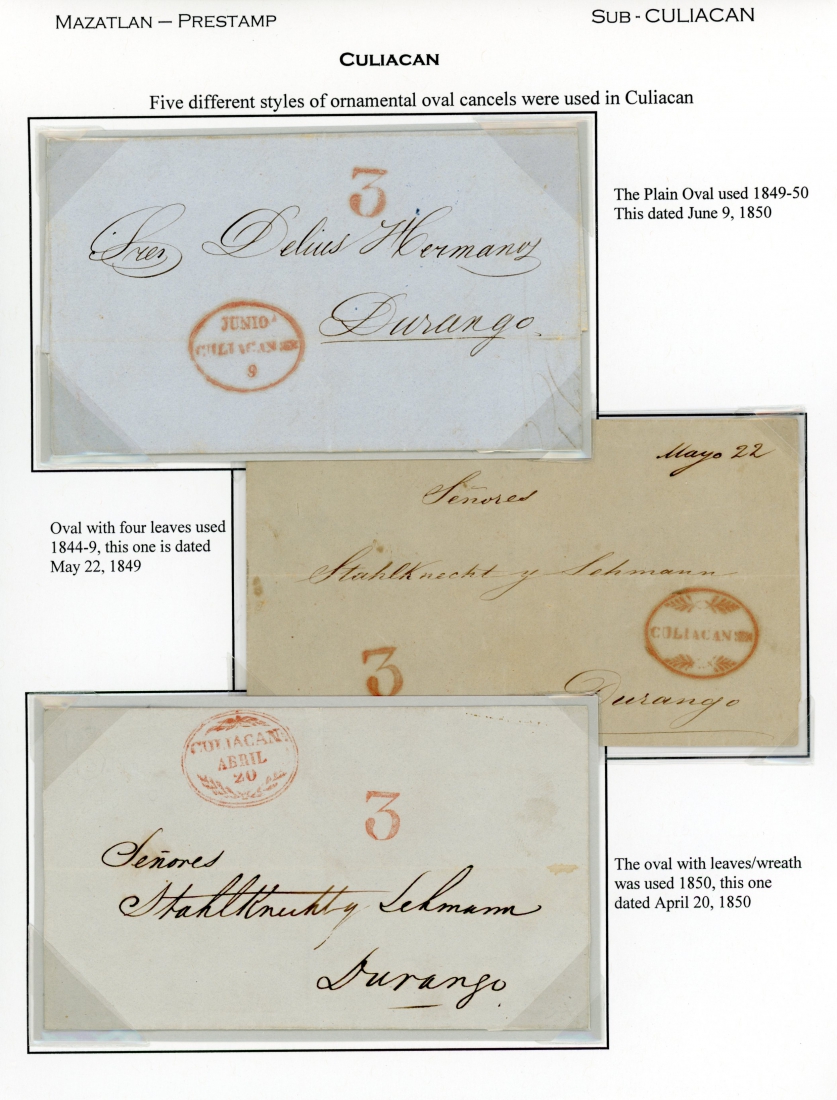 MAZATLAN – PRESTAMP
SUB - CULIACAN
CULIACAN
Five different styles of ornamental oval cancels were used in Culiacan
3
Sres Delius Hermanos
Durango.
JUNIO
CULIACAN
9
The Plain Oval used 1849-50
This dated June 9, 1850
Mayo 22
Señores
Stahlknecht y Lehmann
CULIACAN
3
Durango
Oval with four leaves used
1844-9, this one is dated
May 22, 1849
CULIACAN
ABRIL
20
3
Señores
Stahlknecht y Lehmann
Durango.
The oval with leaves/wreath
was used 1850, this one
dated April 20, 1850